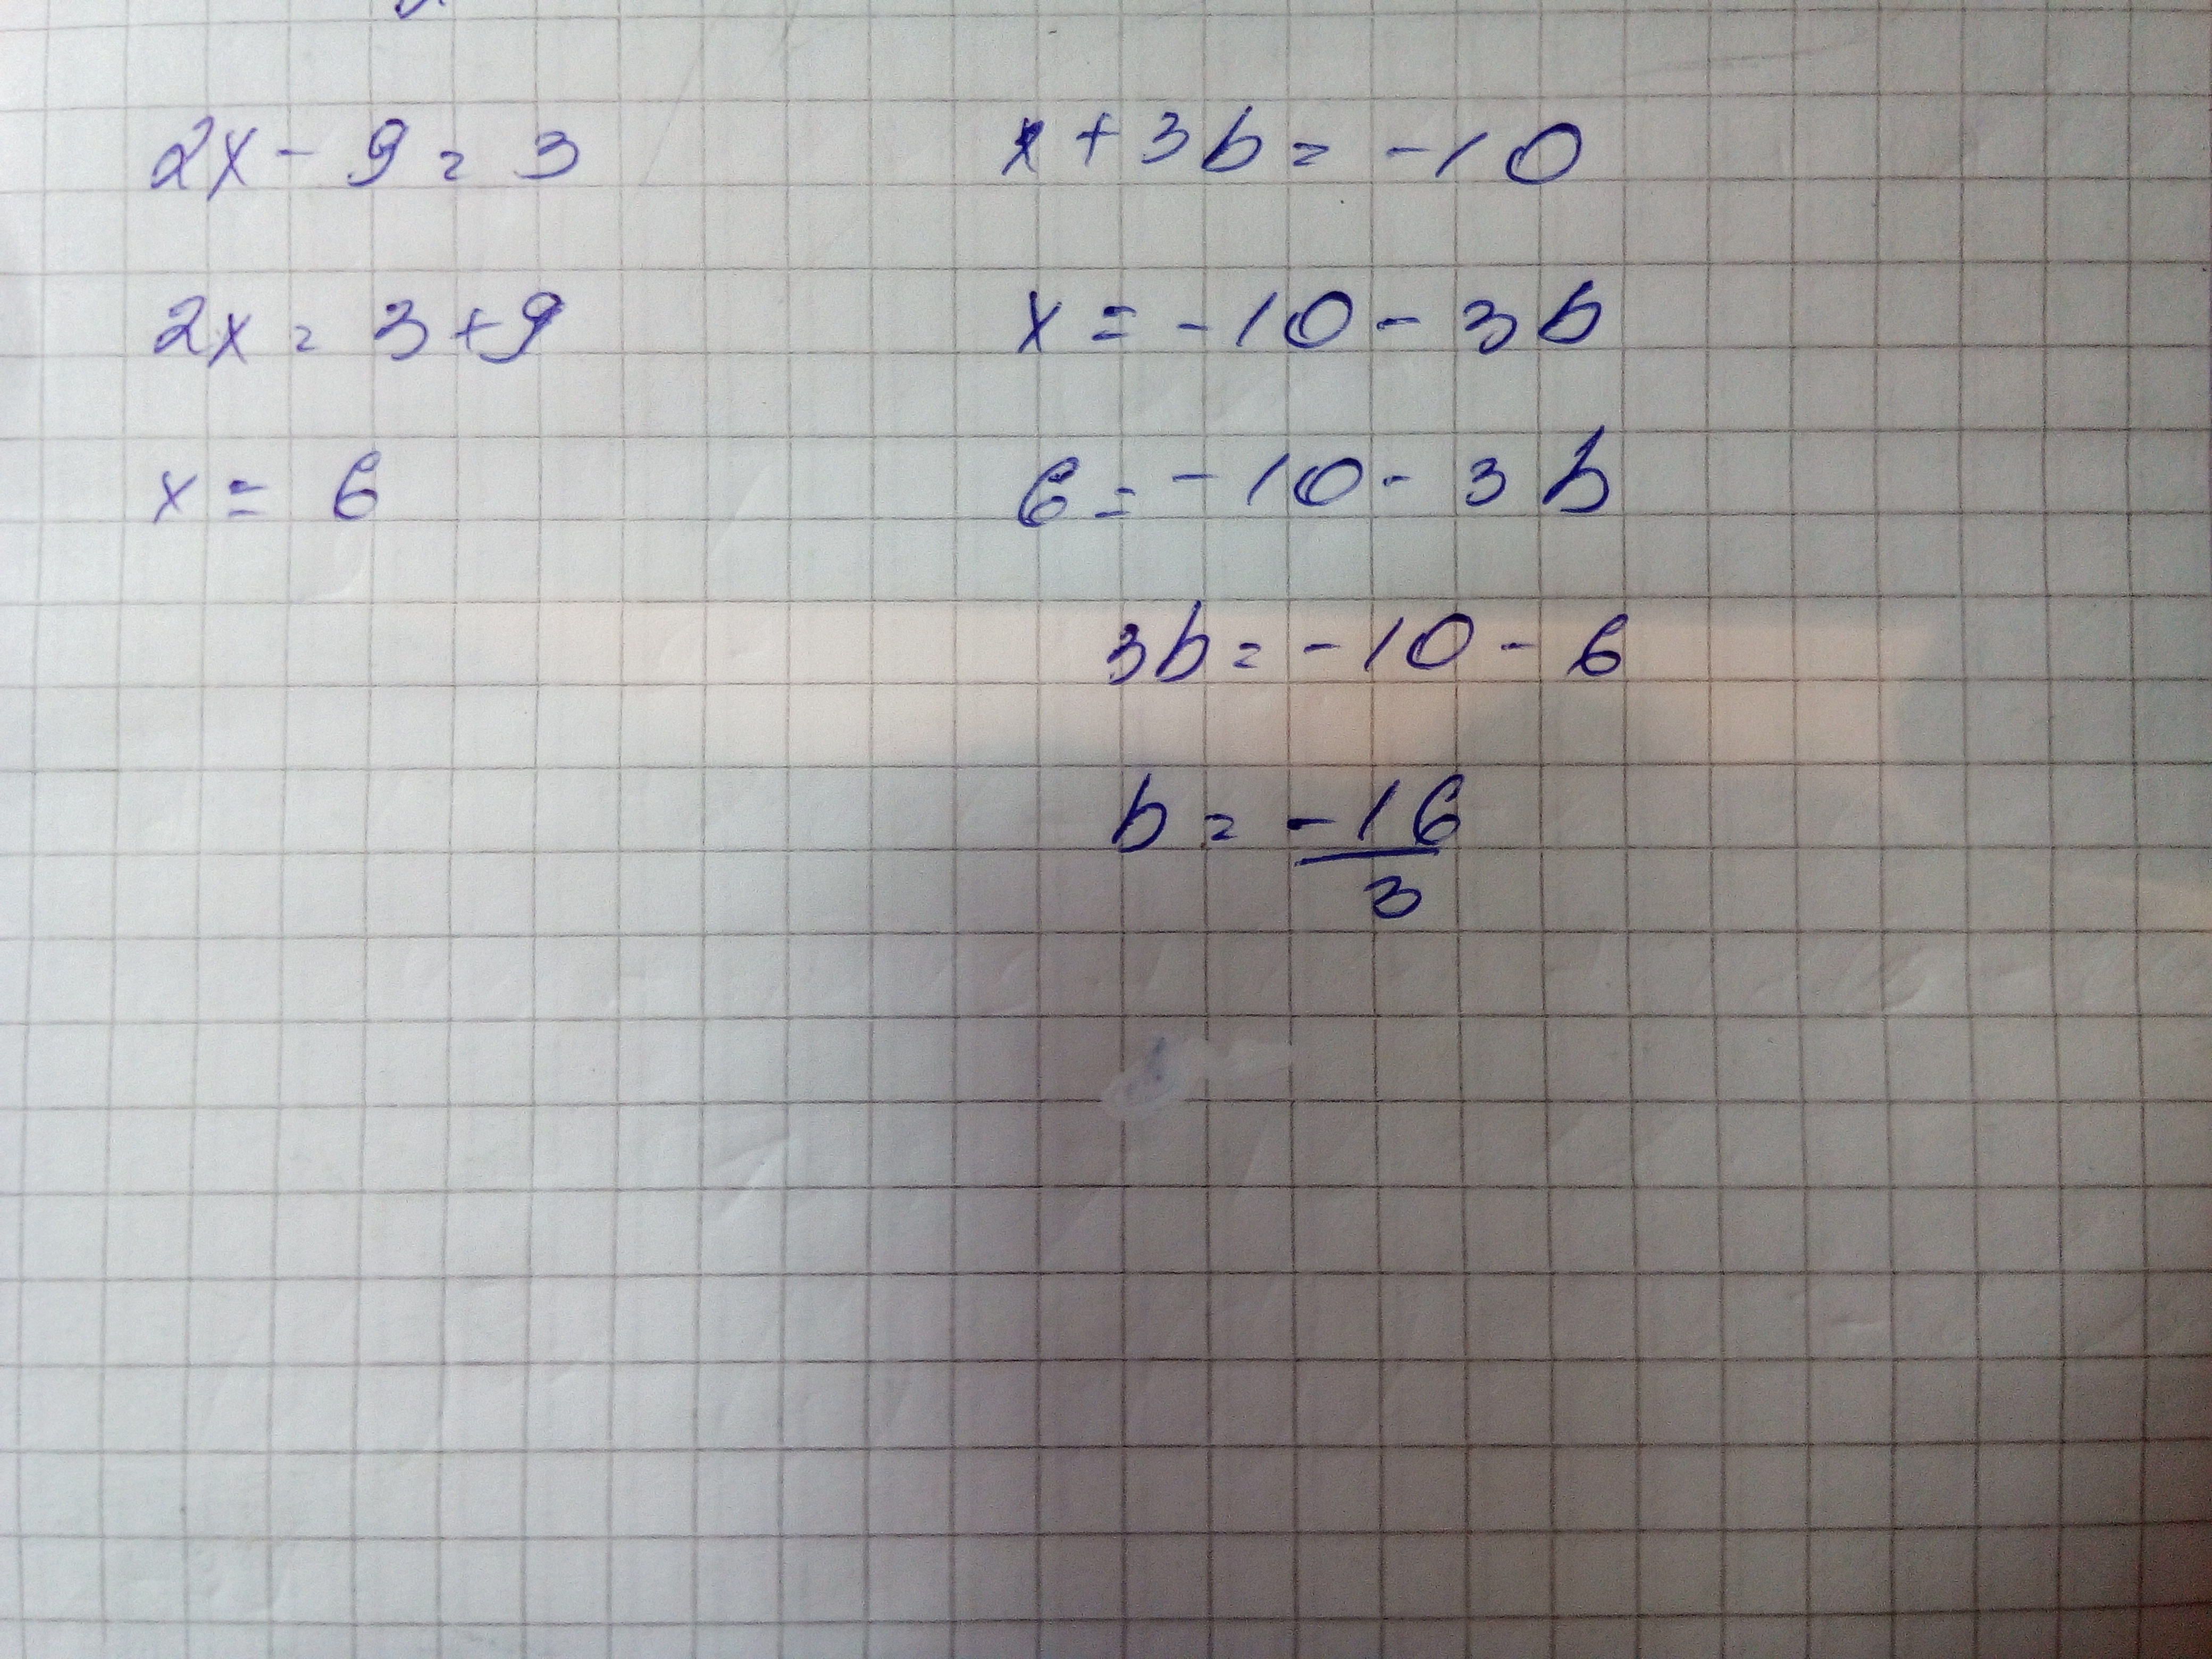 2x - 9 = 3
2x = 3 + 9
x = 6
x + 3b = -10
x = -10 - 3b
6 = -10 - 3b
3b = -10 - 6
b = -16/3